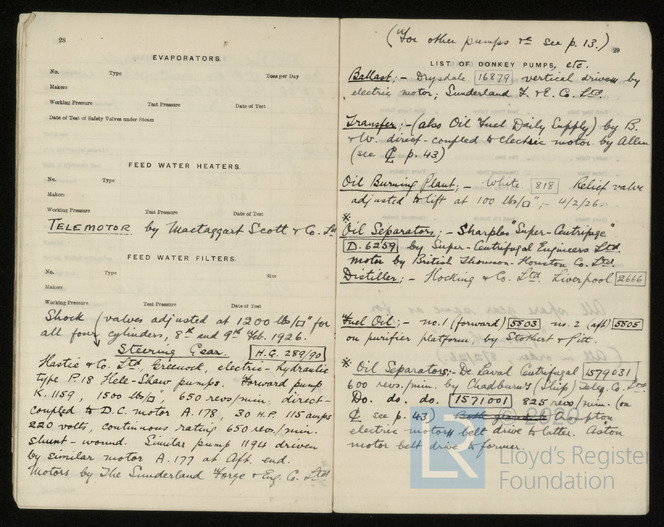 28
EVAPORATORS.
No. Type Tons per Day
Makers
Working Pressure Test Pressure Date of Test
Date of Test of Safety Valves under Steam
FEED WATER HEATERS.
No. Type
Makers
Working Pressure Test Pressure Date of Test
TELEMOTOR by Mactaggart Scott & Co. Ltd
FEED WATER FILTERS.
No. Type Size
Makers
Working Pressure Test Pressure Date of Test
Shock (valves adjusted at 1200 lbs/□" for
all four cylinders, 8th and 9th Feb. 1926.
Steering Gear. H.G. 289/90
Hastie & Co. Ltd, Greenock, electric-hydraulic
type P.18 Hele-Shaw pumps. Forward pump
K.1159, 1500 lbs/□", 650 revs/min. direct-
coupled to D.C. motor A.178, 30 H.P. 115 amps
220 volts, continuous rating 650 revs./min.
shunt-wound. Similar pump 1194 driven
by similar motor A.177 at Aft. end.
Motors by The Sunderland Forge & Eng. Co. Ltd
(For other pumps &c see p. 13.)
29
LIST OF DONKEY PUMPS, etc.
Ballast; - Drysdale 16879 vertical driven by
electric motor; Sunderland F. & E. Co. Ltd.
Transfer; - (also Oil Fuel Daily Supply) by B.
& W. direct-coupled to electric motor by Allen
(see ℄ p. 43)
Oil Burning Plant; - White 818 Relief valve
adjusted to lift at 100 lbs/□"; - 4/2/26
*
Oil Separators; - Sharples "Super-Centrifuge"
D.6259 by Super-Centrifugal Engineers Ltd.
motor by British Thomson-Houston Co. Ltd.
Distiller; - Hocking & Co. Ltd. Liverpool 2666
*
Fuel Oil; - no. 1 (forward) 5503 no. 2 (aft) 5505
on purifier platform, by Stothert & Pitt.
* Oil Separators; - De Laval Centrifugal 1579031
600 revs./min. by Chadburn's (Ship) Teleg. Co. Ltd
Do. do. do. 1571001 825 revs/min. (on
℄ see p. 43) Crompton
electric motor belt drive to latter. Aston
motor belt drive to former.
LR
2020
Lloyd's Register
Foundation